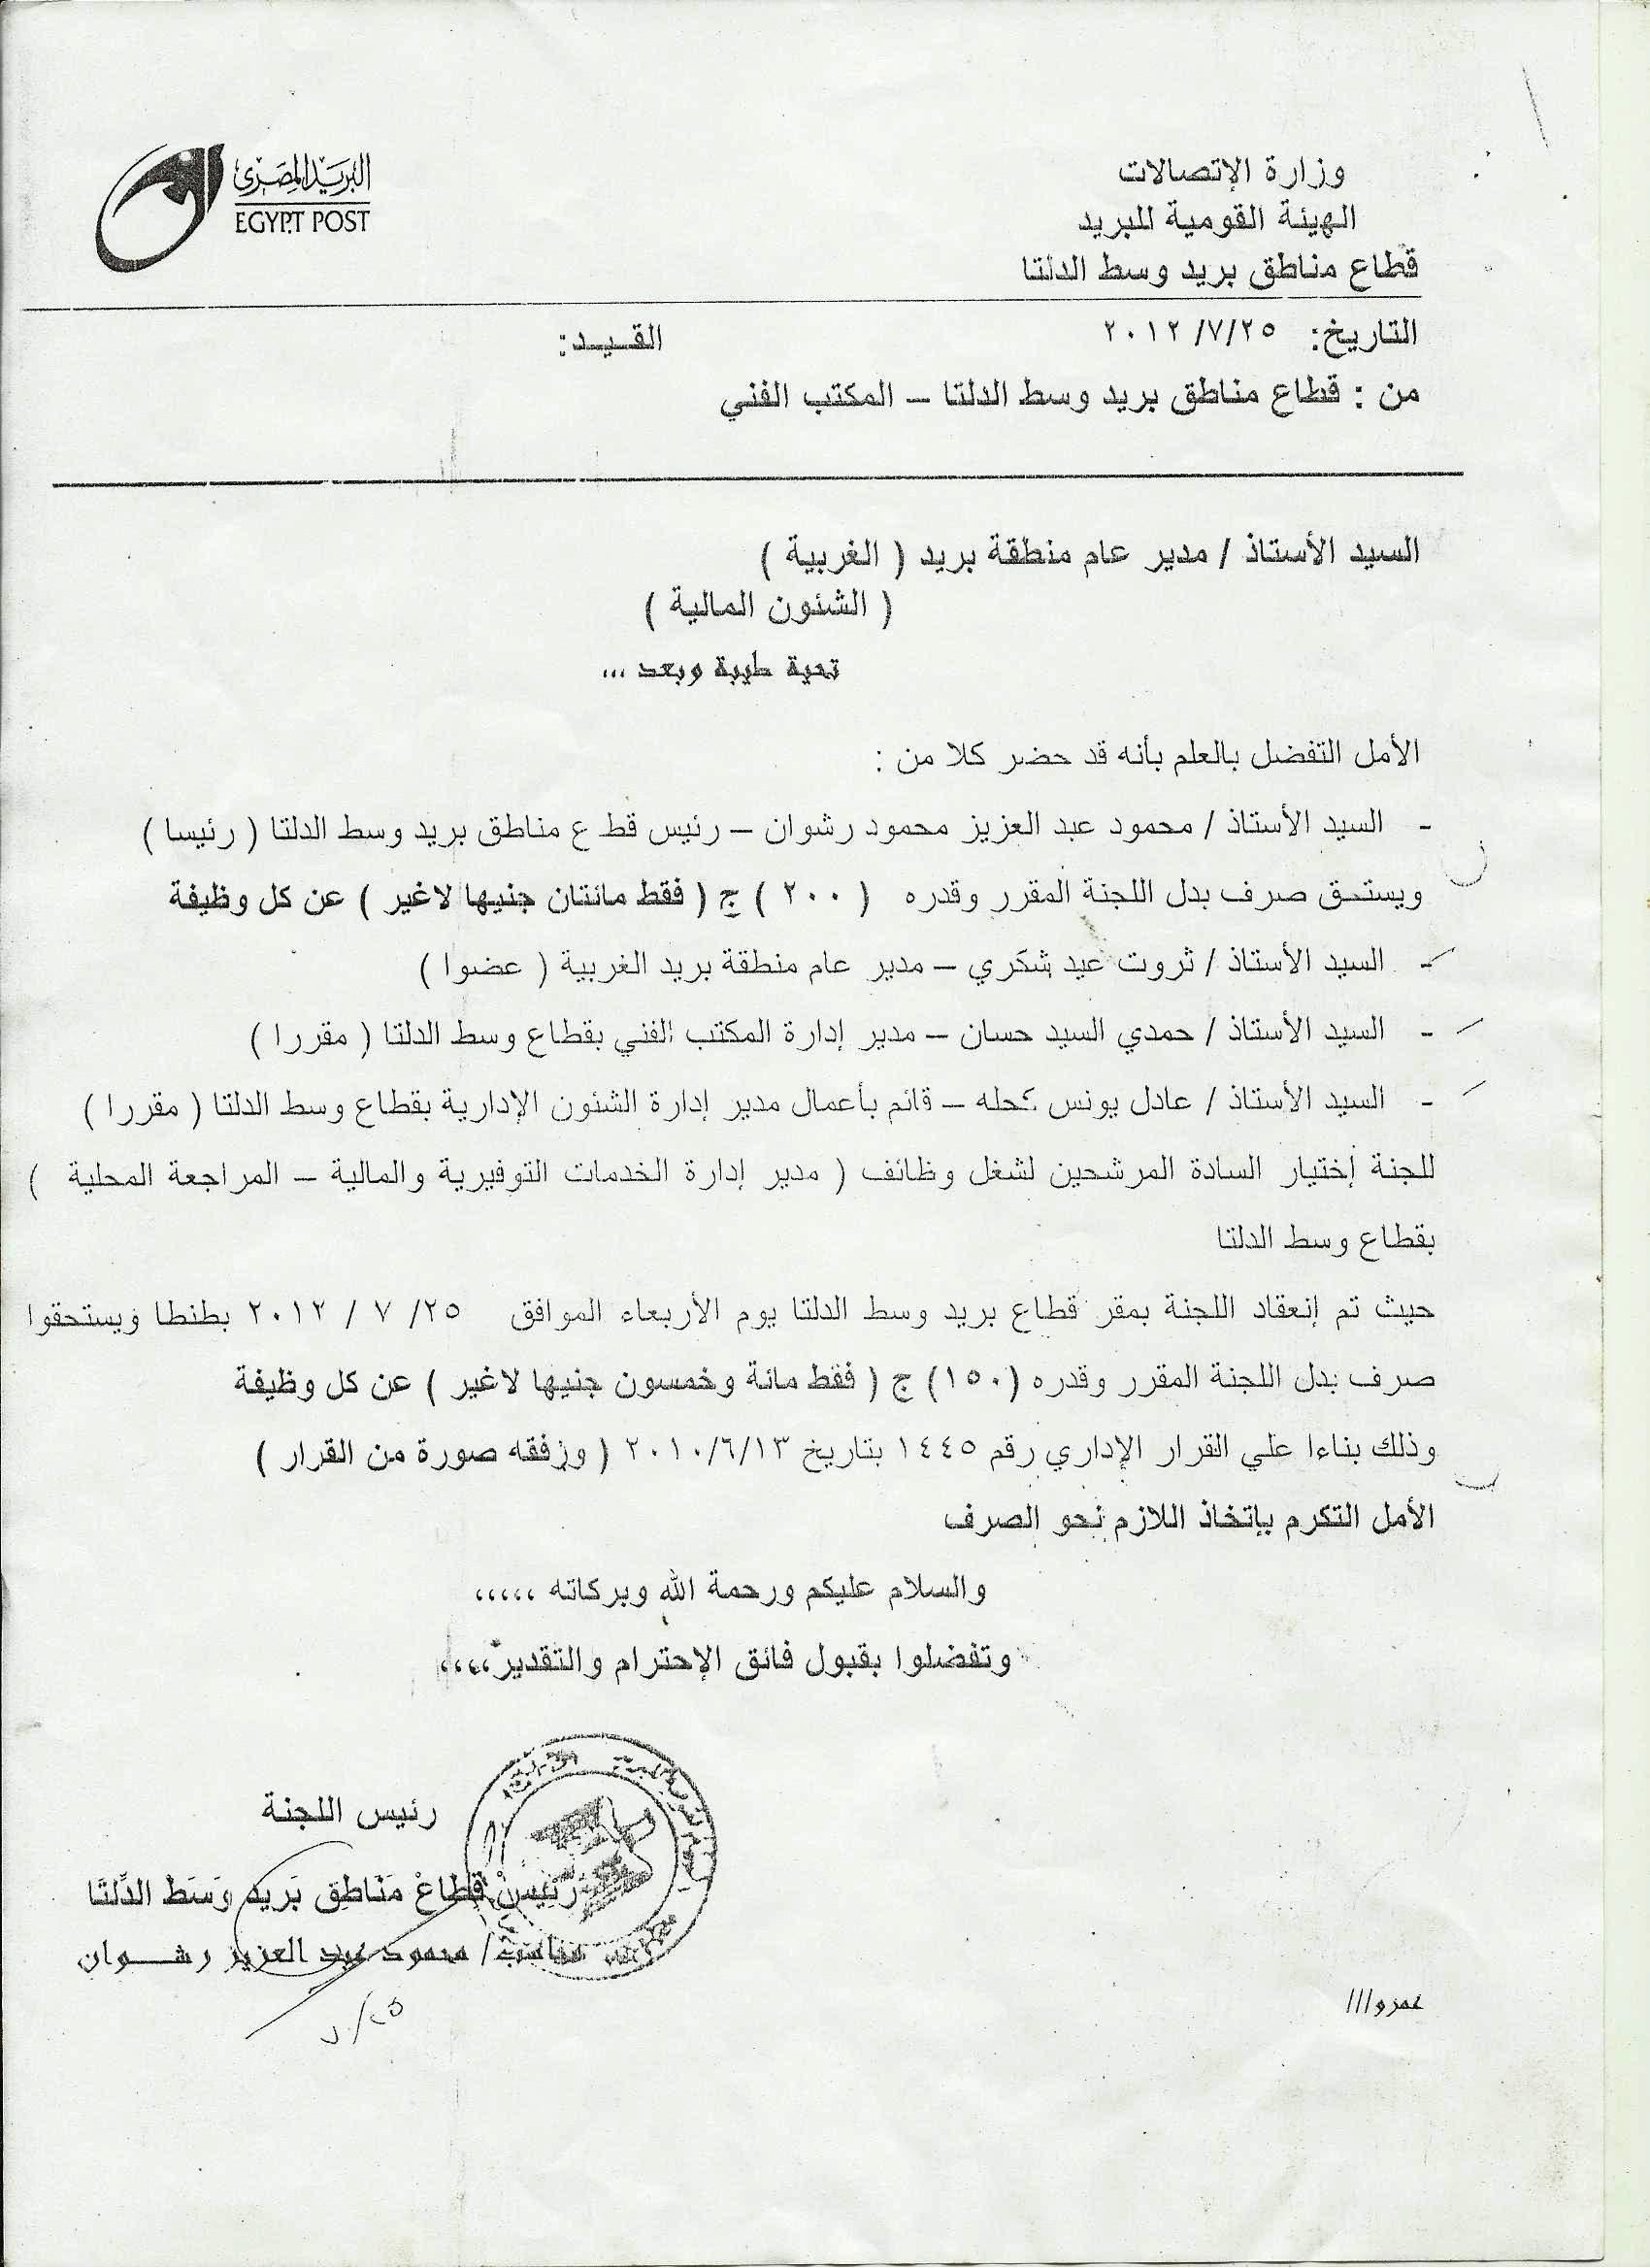 البريد المصرى
EGYPT POST
وزارة الإتصالات
الهيئة القومية للبريد
قطاع مناطق بريد وسط الدلتا
التاريخ: ٢٠١٢/٧/٢٥ القـيـد:
من : قطاع مناطق بريد وسط الدلتا – المكتب الفني
السيد الأستاذ / مدير عام منطقة بريد ( الغربية )
( الشئون المالية )
تحية طيبة وبعد ...
الأمل التفضل بالعلم بأنه قد حضر كلا من :
- السيد الأستاذ / محمود عبد العزيز محمود رشوان – رئيس قط ع مناطق بريد وسط الدلتا ( رئيسا )
ويستحق صرف بدل اللجنة المقرر وقدره ( ٢٠٠ ) ج ( فقط مائتان جنيها لاغير ) عن كل وظيفة
- السيد الأستاذ / ثروت عيد شكري – مدير عام منطقة بريد الغربية ( عضوا )
- السيد الأستاذ / حمدي السيد حسان – مدير إدارة المكتب الفني بقطاع وسط الدلتا ( مقررا )
- السيد الأستاذ / عادل يونس كحله – قائم بأعمال مدير إدارة الشئون الإدارية بقطاع وسط الدلتا ( مقررا )
للجنة إختيار السادة المرشحين لشغل وظائف ( مدير إدارة الخدمات التوفيرية والمالية – المراجعة المحلية )
بقطاع وسط الدلتا
حيث تم إنعقاد اللجنة بمقر قطاع بريد وسط الدلتا يوم الأربعاء الموافق ٢٥/ ٧ / ٢٠١٢ بطنطا ويستحقوا
صرف بدل اللجنة المقرر وقدره (١٥٠) ج ( فقط مائة وخمسون جنيها لاغير ) عن كل وظيفة
وذلك بناءا علي القرار الإداري رقم ١٤٤٥ بتاريخ ٢٠١٠/٦/١٣ ( ورفقه صورة من القرار )
الأمل التكرم بإتخاذ اللازم نحو الصرف
والسلام عليكم ورحمة الله وبركاته ،،،،،
وتفضلوا بقبول فائق الإحترام والتقدير،،،،
رئيس اللجنة
رئيس قطاع مناطق بريد وسط الدلتا
محاسب/ محمود عبد العزيز رشـــوان
٧/٢٥
عمرو///